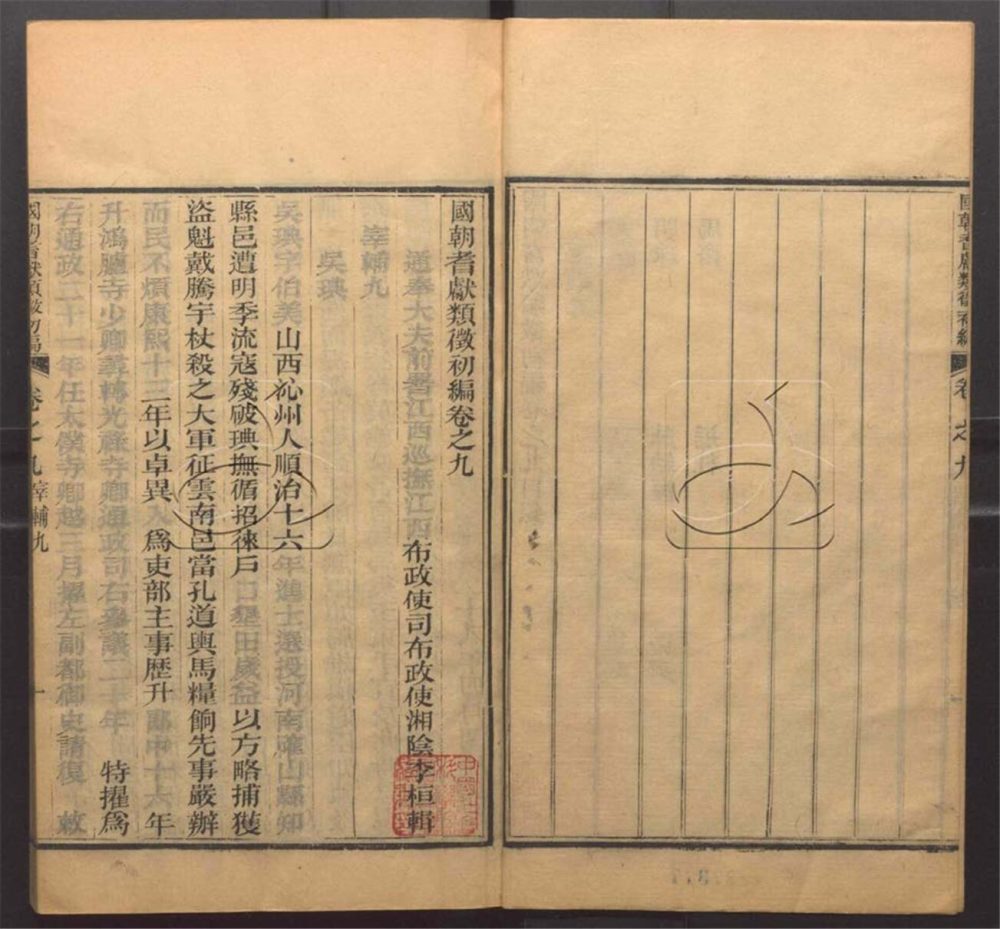 國朝耆獻類徵初編卷之九
國朝耆獻類徵初編卷之九
通奉大夫前署江西巡撫江西布政使司布政使湘陰李桓輯
宰輔九
吳琠
吳琠字伯美山西沁州人順治十六年進士選授河南確山縣知
縣邑遭明季流寇殘破琠撫循招徠戶口墾田歲益以方略捕獲
盜魁戴騰宇杖殺之大軍征雲南邑當孔道輿馬糧餉先事嚴辦
而民不煩康熙十三年以卓異入爲吏部主事歷升郎中十六年
升鴻臚寺少卿尋轉光祿寺少卿通政司右參議二十年 特擢爲
右通政二十一年任太僕寺卿越三月擢左副都御史請復 敕
國朝耆獻類徵初編 卷之九 宰輔九 一